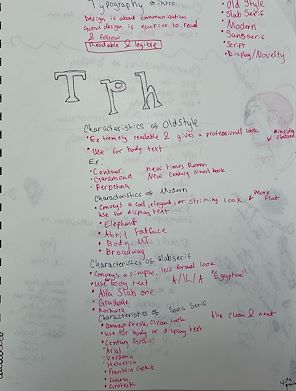 Typography - intro
Design is about communication
Good design is easier to read
& follow
Readable & legible
Old Style
Slab Serif
Modern
Sans serif
Script
Display/Novelty
T p h
Characteristics of Old Style
Extremely readable & gives a professional look
Use for body text
Ex:
Centaur New Times Roman
Garamond New Century Schoolbook
Perpetua
Characteristics of Modern
Conveys a cool, elegant, or striking look &
Use for display text
Elephant
Abril Fatface
Bodoni MT
Broadway
Characteristics of Slab serif
Conveys a simple, less formal look
Use body text "Egyptian"
Alfa Slab one
Rockwell
Characteristics of Sans Serif
Conveys fresh, clean look the clean & neat
Use for body or display text
Century Gothic
Arial
Verdana
Helvetica
Franklin Gothic
Futura